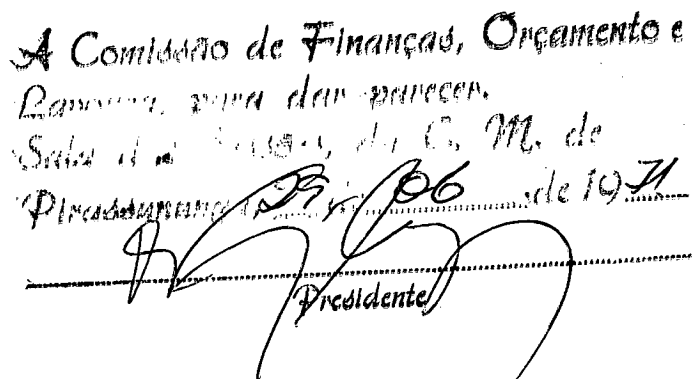 A Comissão de Finanças, Orçamento e
Lavoura, para dar parecer.
Sala das Sessões, da C. M. de
Pirassununga, 29, 06 de 1971
Presidente